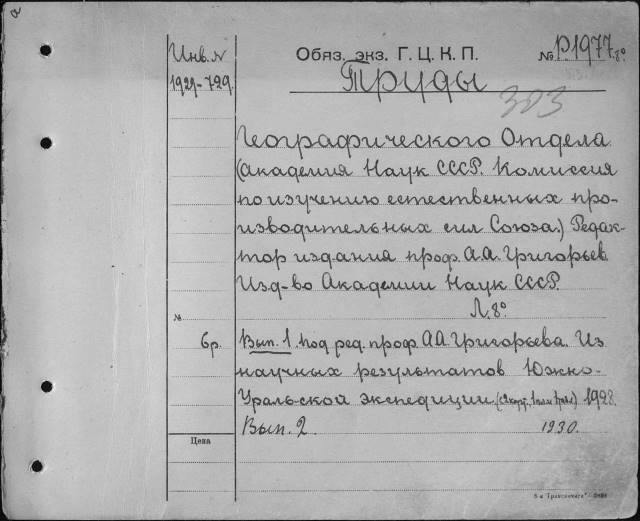 Инв. №
1929-729.
Обяз. экз. Г. Ц. К. П.
№ Р.1977. 8°
Труды
303
Географического Отдела.
(Академия Наук СССР. Комиссия
по изучению естественных про-
изводительных сил Союза.) Редак-
тор издания проф. А.А. Григорьев
Изд-во Академии Наук СССР.
Л. 8°
№
6р.
Вып. 1. под ред. проф. А.А. Григорьева. Из
научных результатов Южно-
Уральской экспедиции. 1928.
Вып. 2. 1930.
Цена